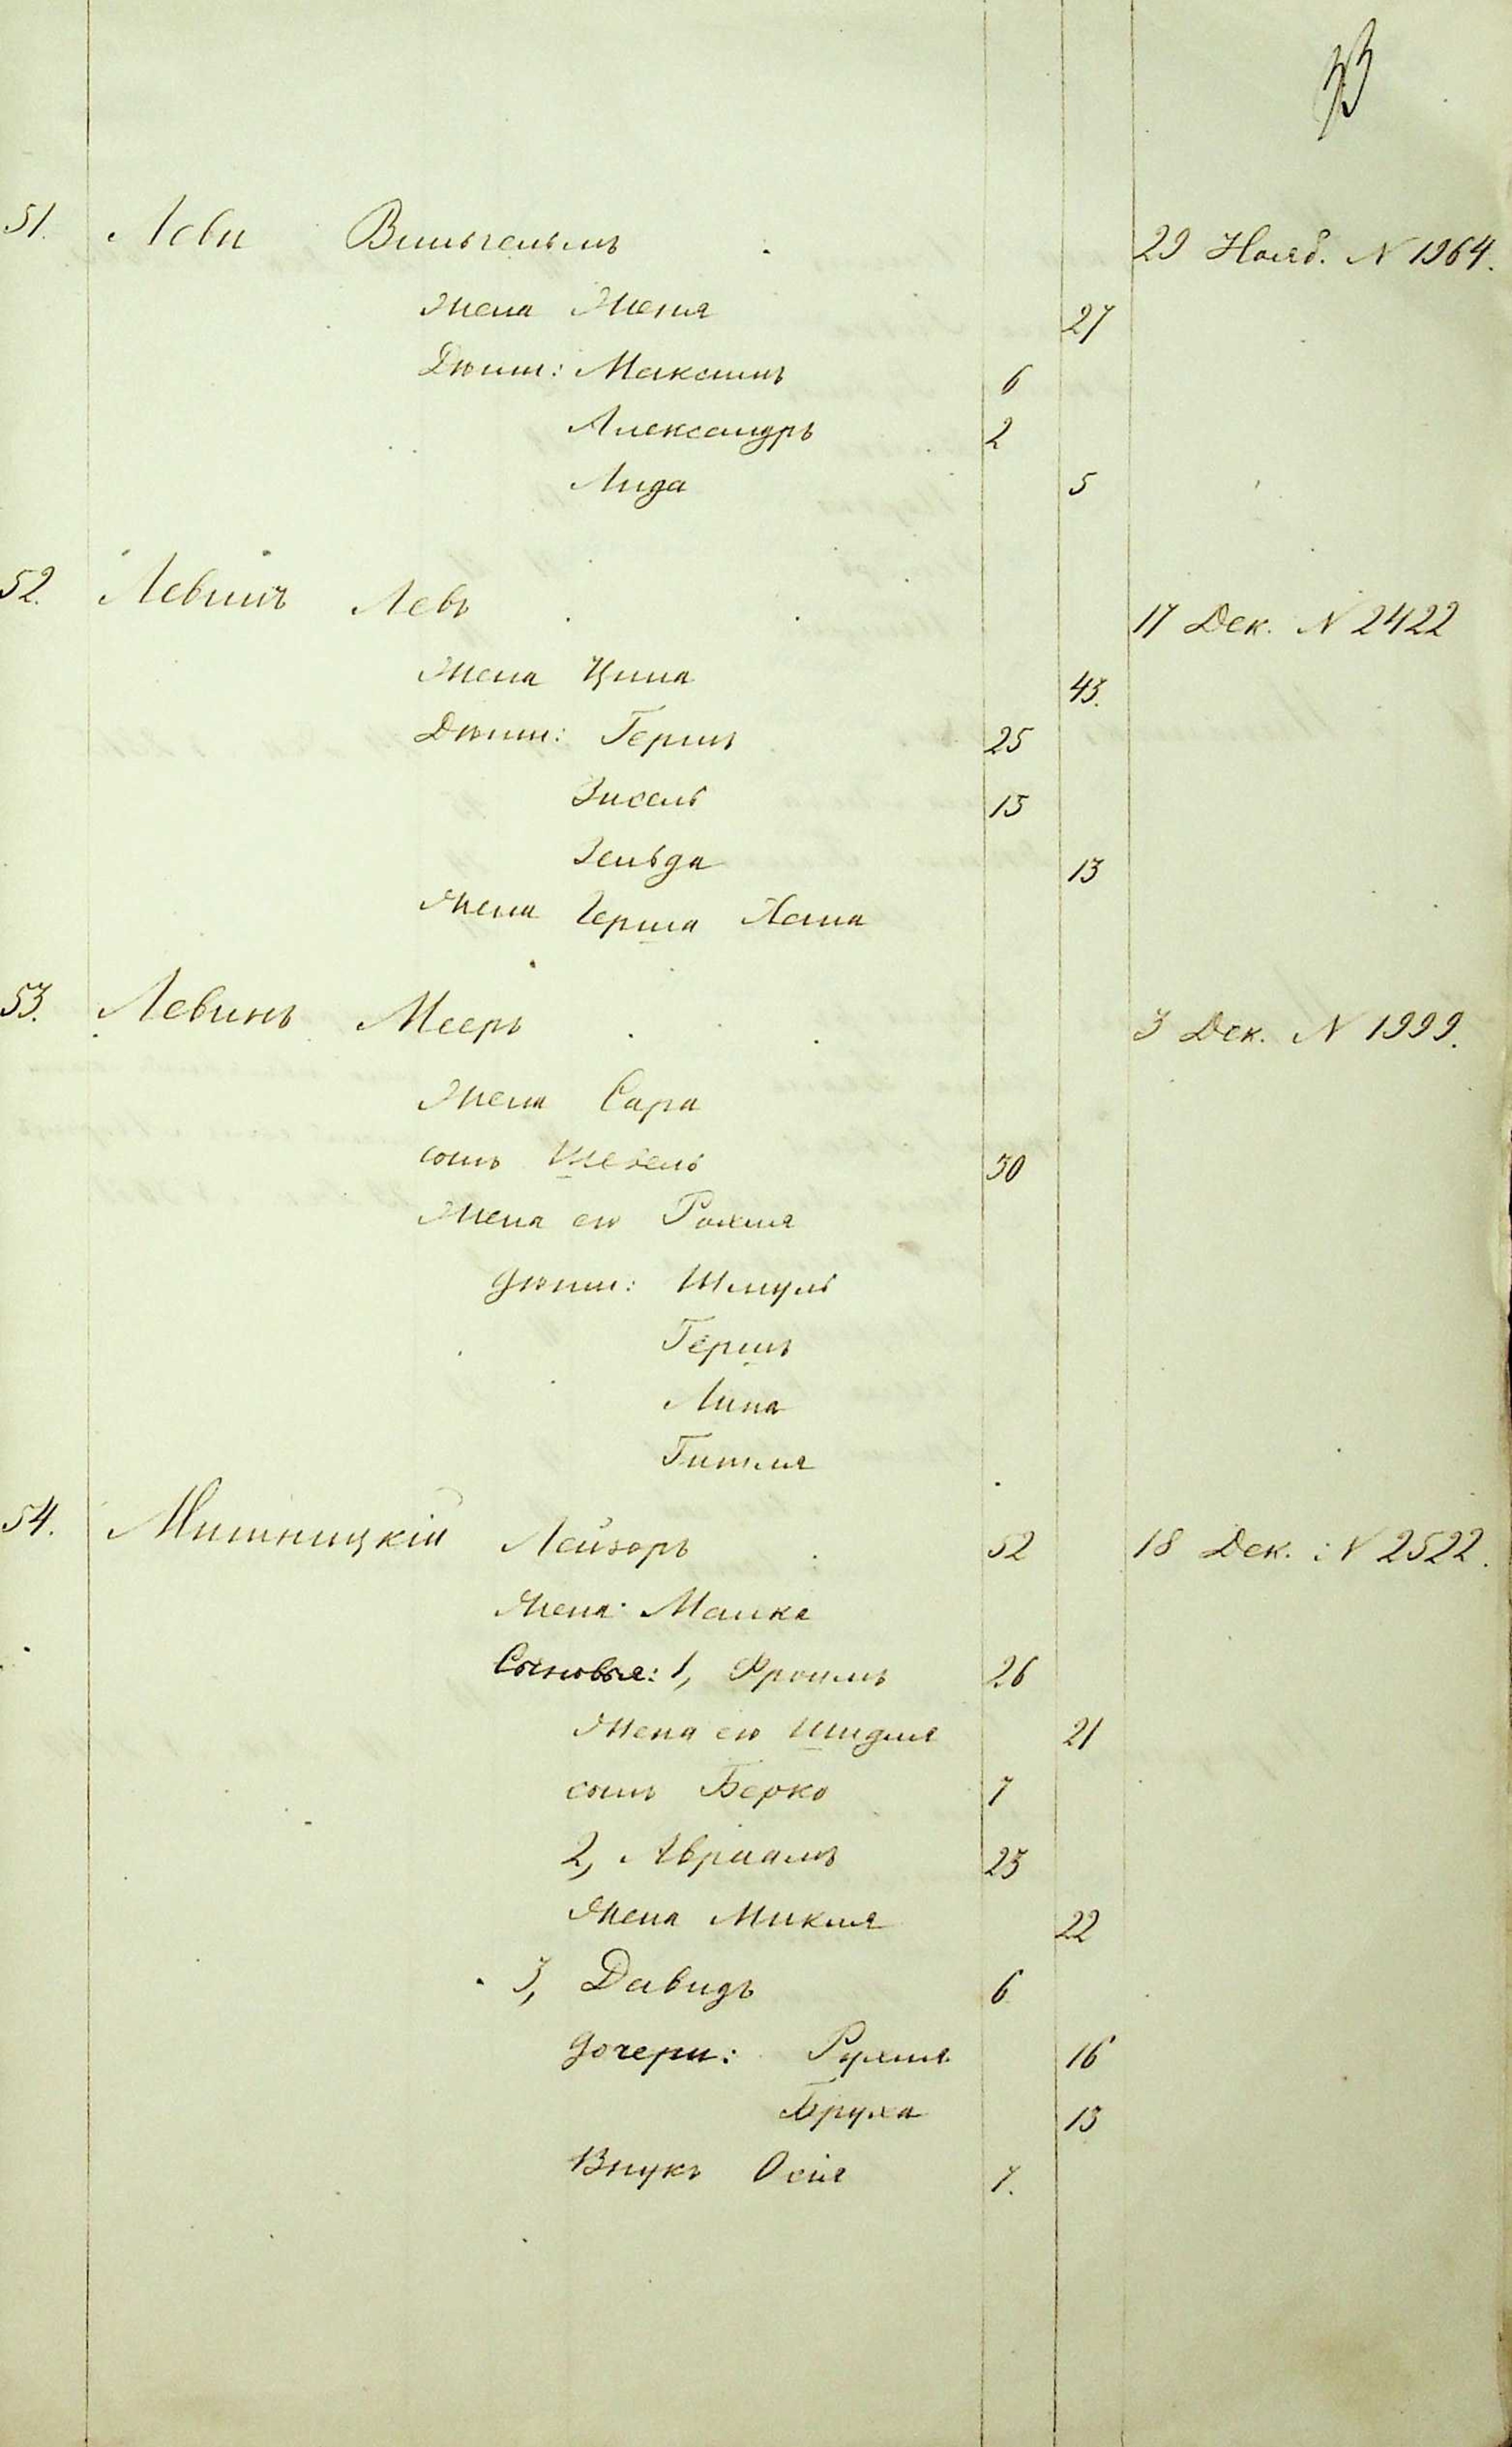 33
51. Леви Вильгельмъ 29 Нояб. N 1964.
жена Женя 27
Дѣти: Максимъ 6
Александръ 2
Лида 5
52. Левинъ Левъ 17 Дек. N 2422
жена Цина 43.
Дѣти: Гершъ 25
Зисель 15
Зельда 13
жена Герша Хана
53. Левинъ Мееръ 3 Дек. N 1999.
жена Сара
сынъ 30
жена его Рахля
дѣти: Шмуль
Гершъ
Липа
Гитля
54. Мишницкій Лейзоръ 52 18 Дек. N 2522.
жена Малка
Сыновья: 1, Фроимъ 26
жена его Шидля 21
сынъ Берко 7
2, Авраамъ 23
жена Микля 22
3, Давидъ 6
дочери: Рухля 16
Бруха 13
Внукъ Осія 7.